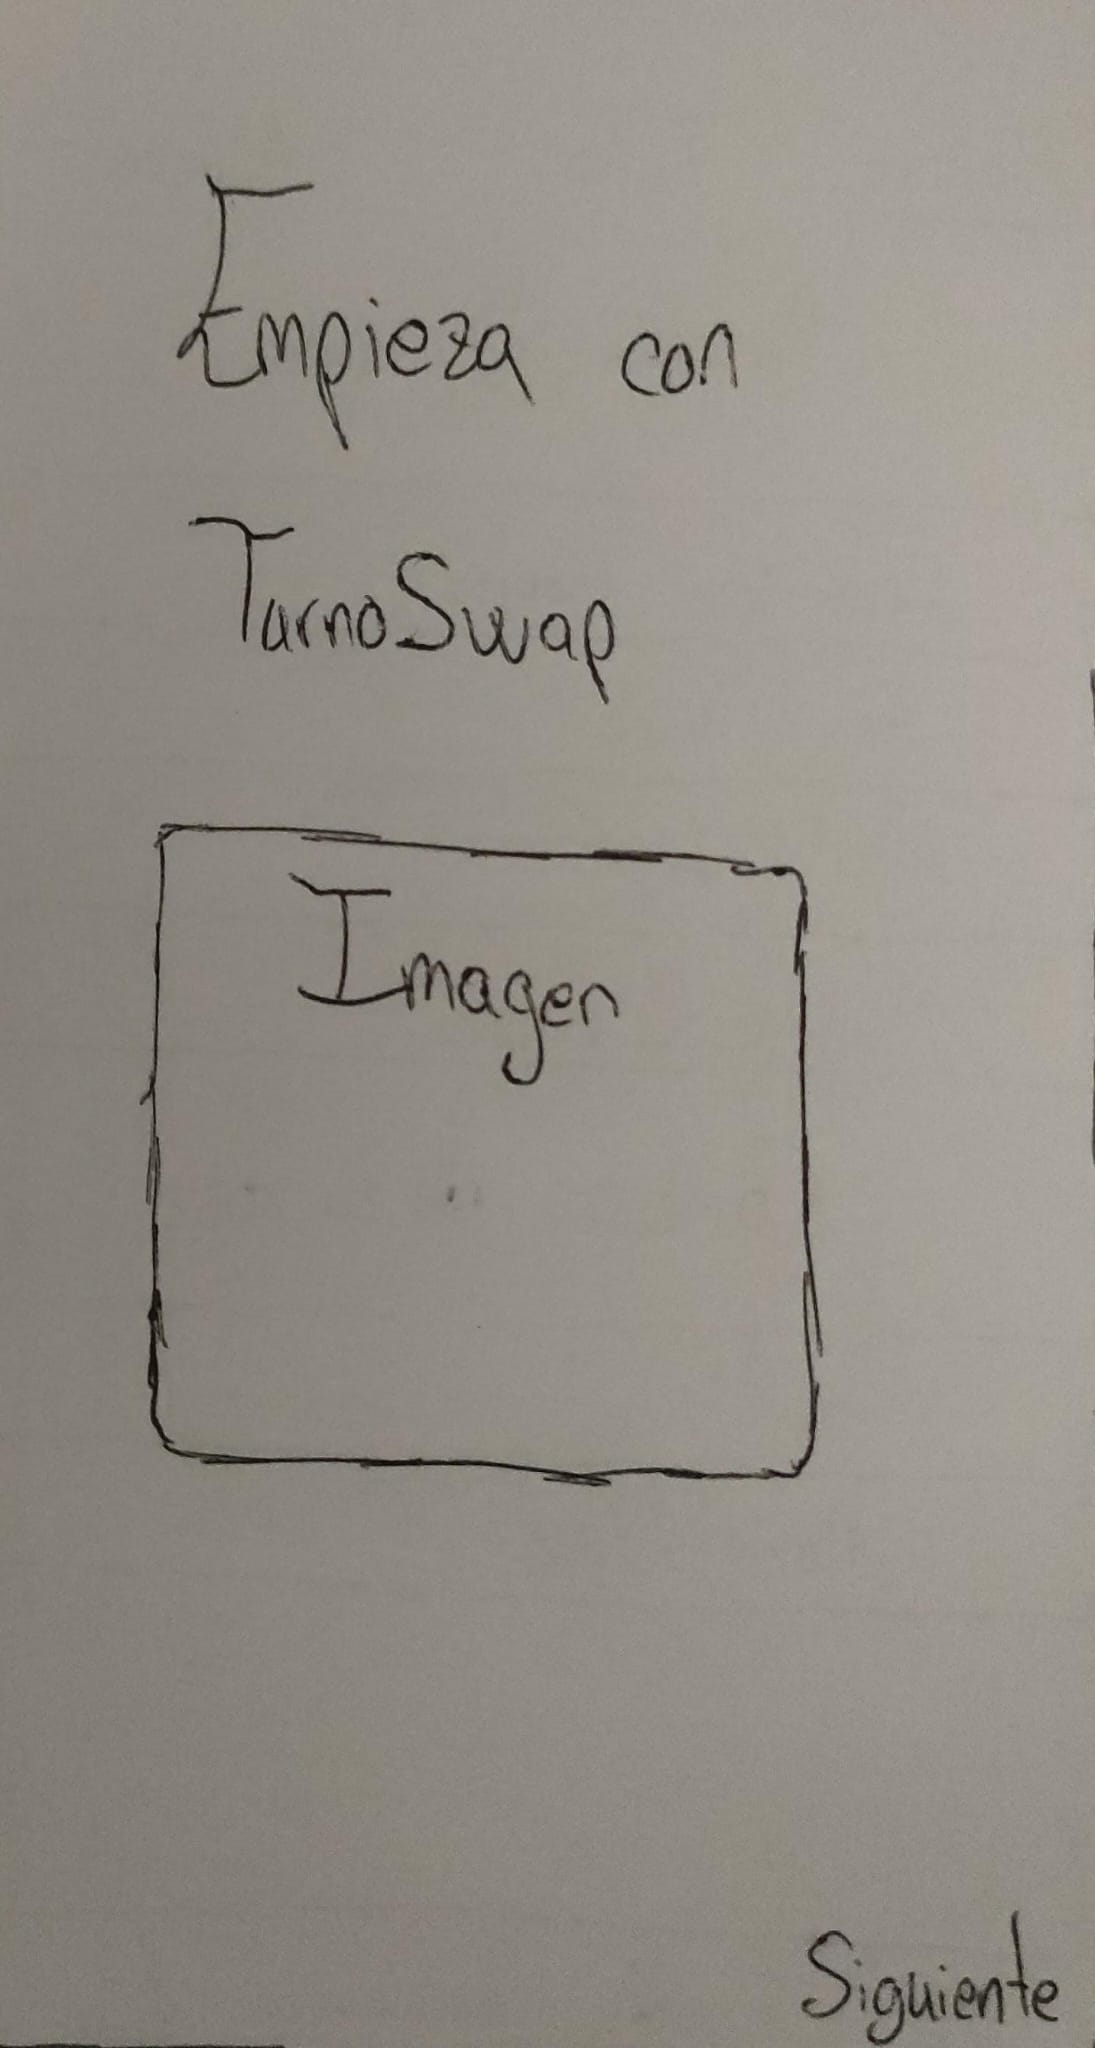 Empieza con
TurnoSwap
Imagen
Siguiente